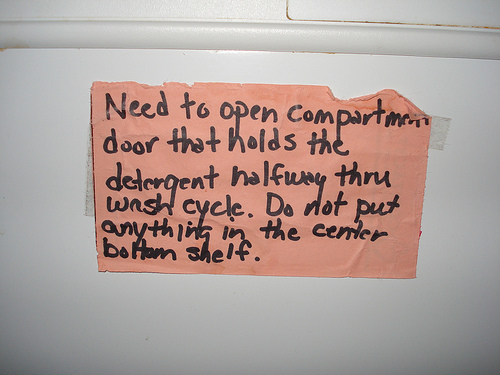 Need to open compartment
door that holds the
detergent halfway thru
wash cycle. Do not put
anything in the center
bottom shelf.